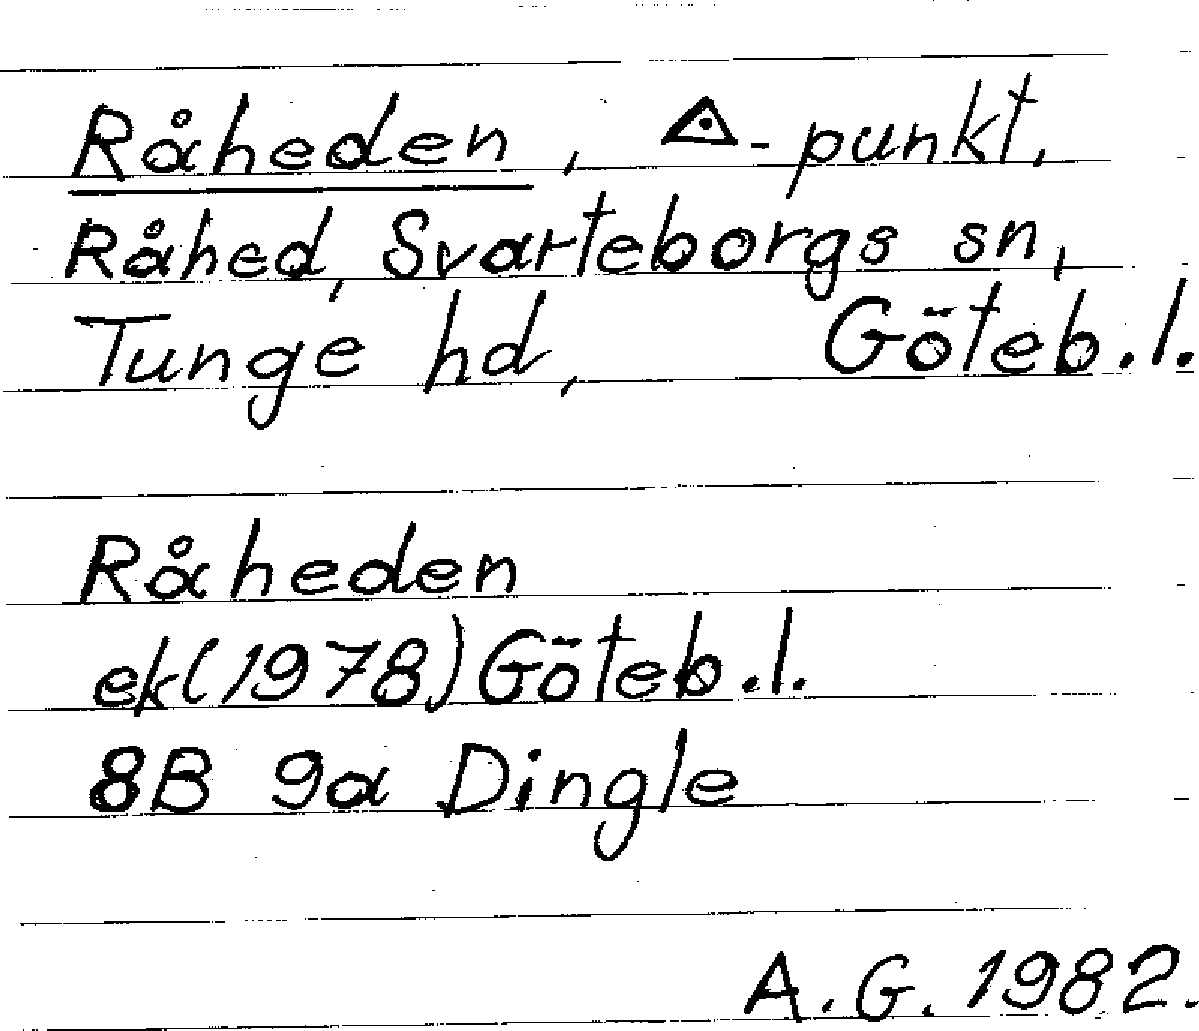 Råheden, ◬-punkt,
Råhed, Svarteborgs sn,
Tunge hd, Göteb.l.
Råheden
ek(1978) Göteb.l.
8B 9a Dingle
A.G. 1982.